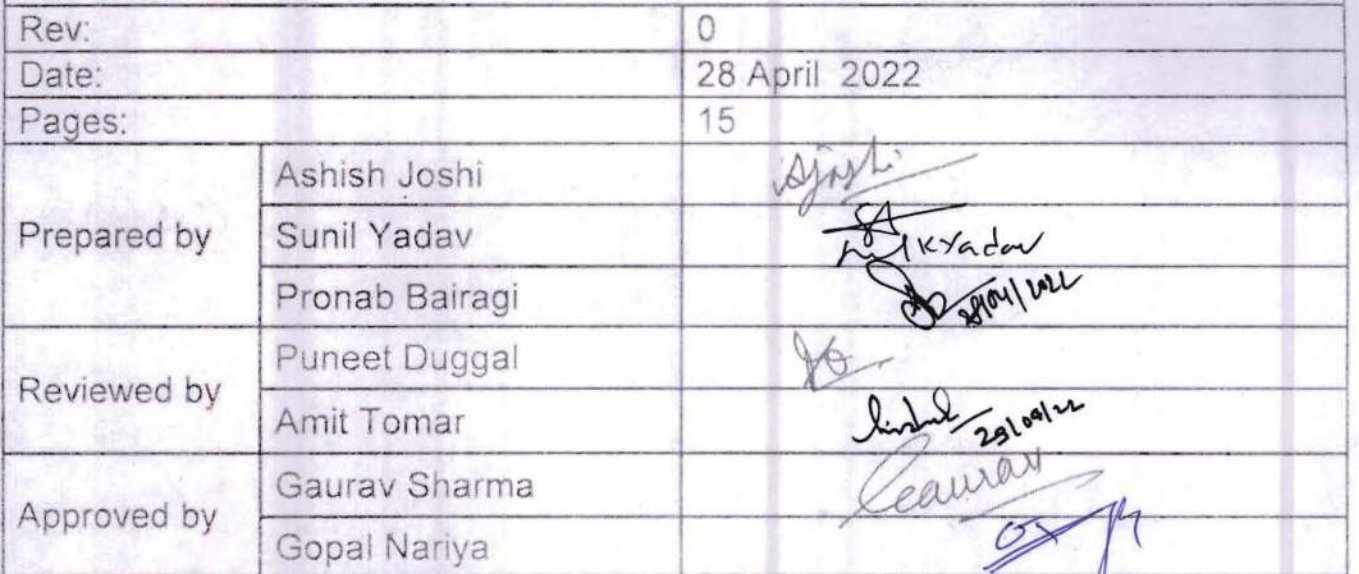 Rev: 0
Date: 28 April 2022
Pages: 15
Prepared by
Ashish Joshi
Sunil Yadav
KYadav
Pronab Bairagi
Reviewed by
Puneet Duggal
Amit Tomar
Approved by
Gaurav Sharma
Gaurav
Gopal Nariya